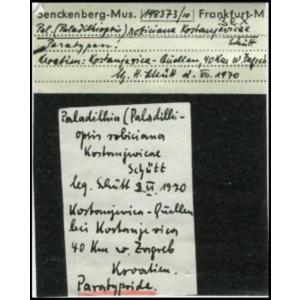 Senckenberg-Mus. 198373/10 Frankfurt-M
Pal. (Paladilhiopsis) robiciana Kostanjevicae
Schütt
Paratypen!
Kroatien: Kostanjevica-Quellen, 40 Km w. Zagreb
Slg. H. Schütt d. VII. 1970
Paladilhia (Paladilhi-
opsis robiciana
Kostanjevicae
Schütt
leg. Schütt 1970
Kostanjevica-Quellen
bei Kostanjevica
40 Km w. Zagreb
Kroatien.
Paratypoide.